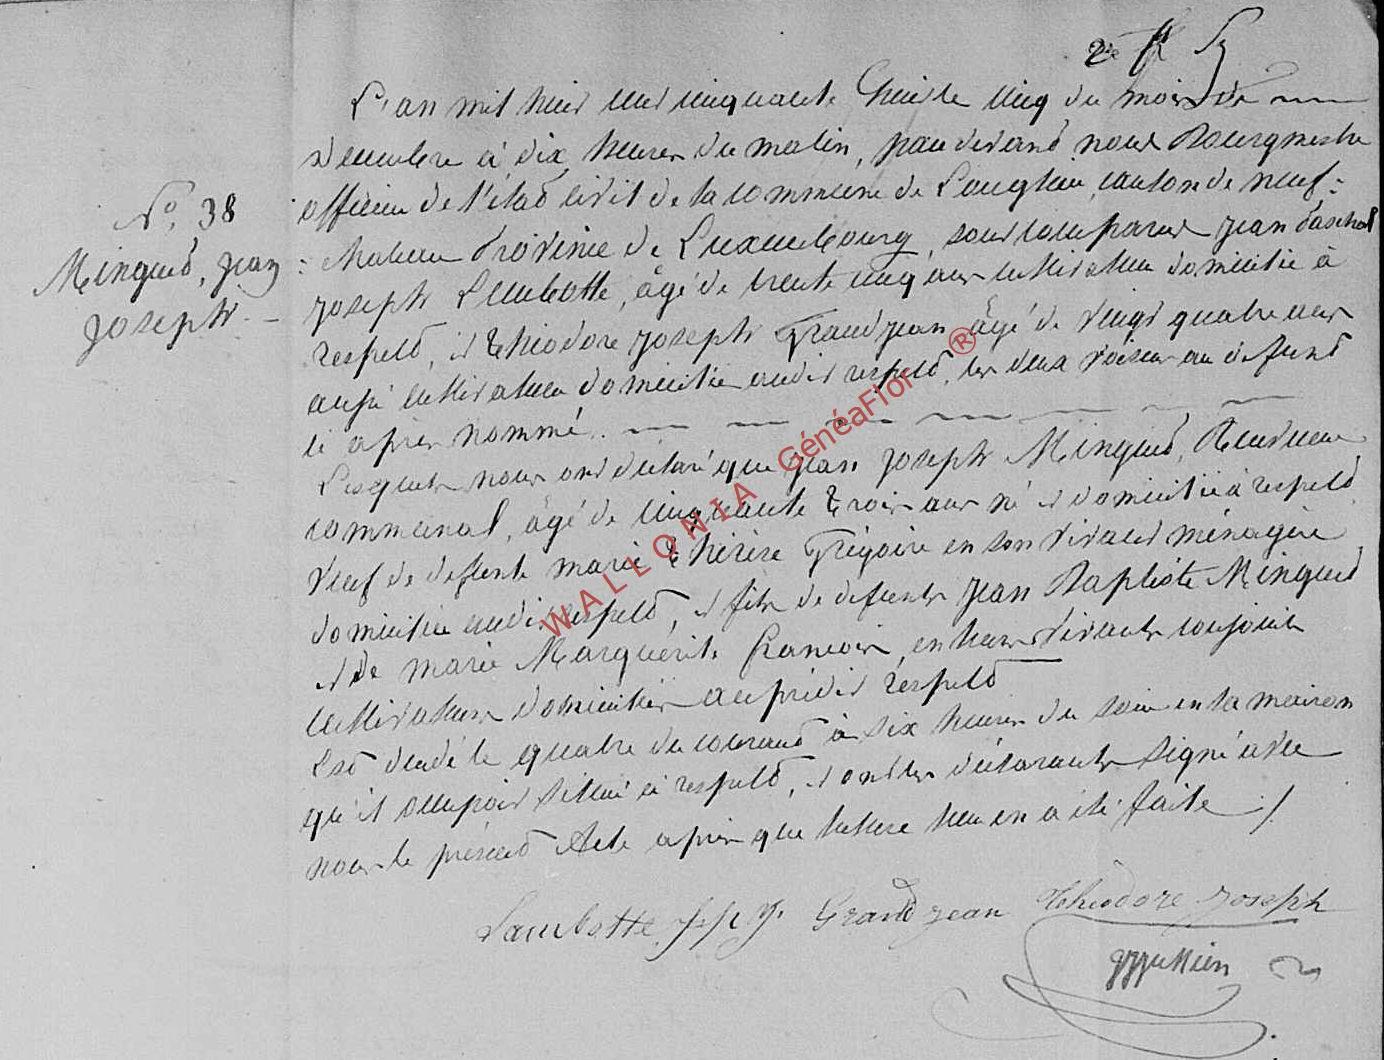 N° 38
Minguet, Jean
Joseph
L'an mil huit cent cinquante huit le cinq du mois de
décembre à dix heures du matin, pardevant nous Bourgmestre
officier de l'état civil de la commune de Longlier, canton de neuf:
:chateau Province de Luxembourg, sont comparus Jean Paschal
Joseph Lambotte, âgé de trente cinq ans cultivateur domicilié à
respelt, et Théodore Joseph Grandjean âgé de vingt quatre ans
aussi cultivateur domicilié audit respelt, les deux voisin au défunt
ci après nommé.
Lesquels nous ont déclaré que Jean Joseph Minguet,
communal, âgé de cinquante trois ans né et domicilié à respelt
veuf de defunte marie Thérèse Grégoire en son vivant ménagère
domicilié audit respelt, et fils de defunts Jean Baptiste Minguet
et de marie Marguerite francois, en leurs vivants conjoints
cultivateurs domiciliés au prédit respelt
Est décédé le quatre du courant à six heures du soir en la maison
qu'il occupoit située à respelt, et ont les déclarants signé avec
nous le présent Acte après que lecture leur en a été faite
Lambotte J. p. J. Grandjean Théodore Joseph
WALLONIA GénéaFlor ®